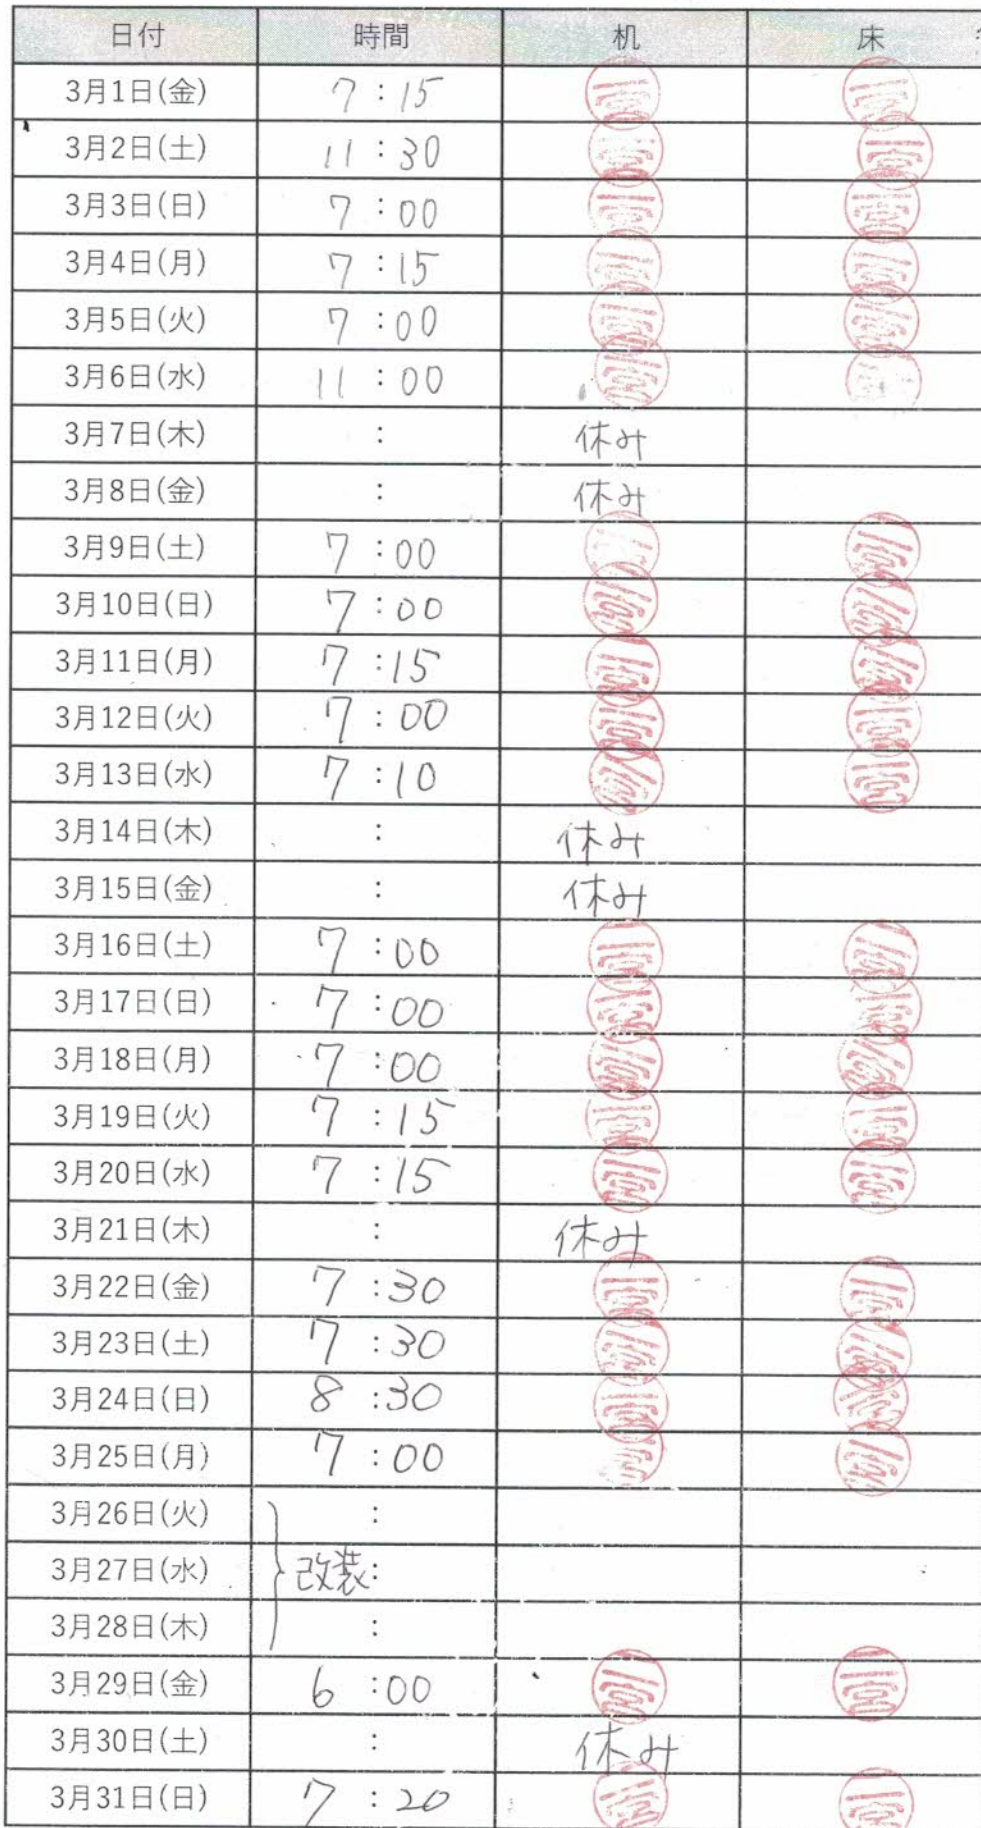 日付 時間 机 床
3月1日(金) 7:15
3月2日(土) 11:30
3月3日(日) 7:00
3月4日(月) 7:15
3月5日(火) 7:00
3月6日(水) 11:00
3月7日(木) : 休み
3月8日(金) : 休み
3月9日(土) 7:00
3月10日(日) 7:00
3月11日(月) 7:15
3月12日(火) 7:00
3月13日(水) 7:10
3月14日(木) : 休み
3月15日(金) : 休み
3月16日(土) 7:00
3月17日(日) 7:00
3月18日(月) 7:00
3月19日(火) 7:15
3月20日(水) 7:15
3月21日(木) : 休み
3月22日(金) 7:30
3月23日(土) 7:30
3月24日(日) 8:30
3月25日(月) 7:00
3月26日(火) :
3月27日(水) 改装:
3月28日(木) :
3月29日(金) 6:00
3月30日(土) : 休み
3月31日(日) 7:20